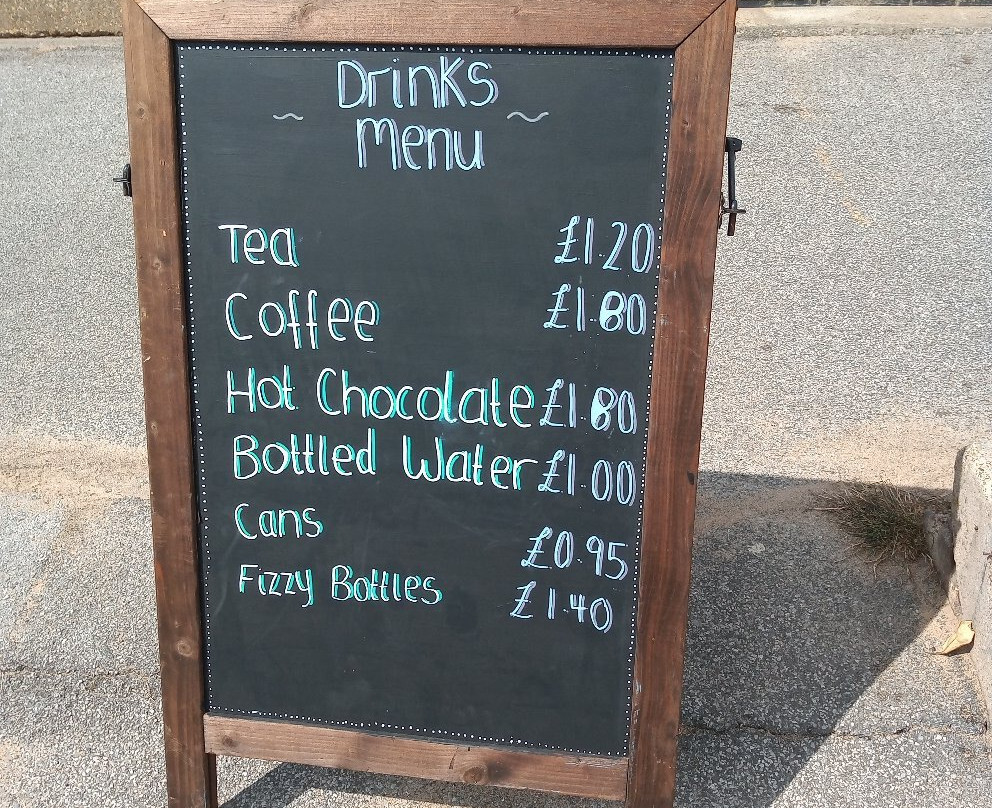 Drinks
~ Menu ~
Tea £1.20
Coffee £1.80
Hot Chocolate £1.80
Bottled Water £1.00
Cans £0.95
Fizzy Bottles £1.40